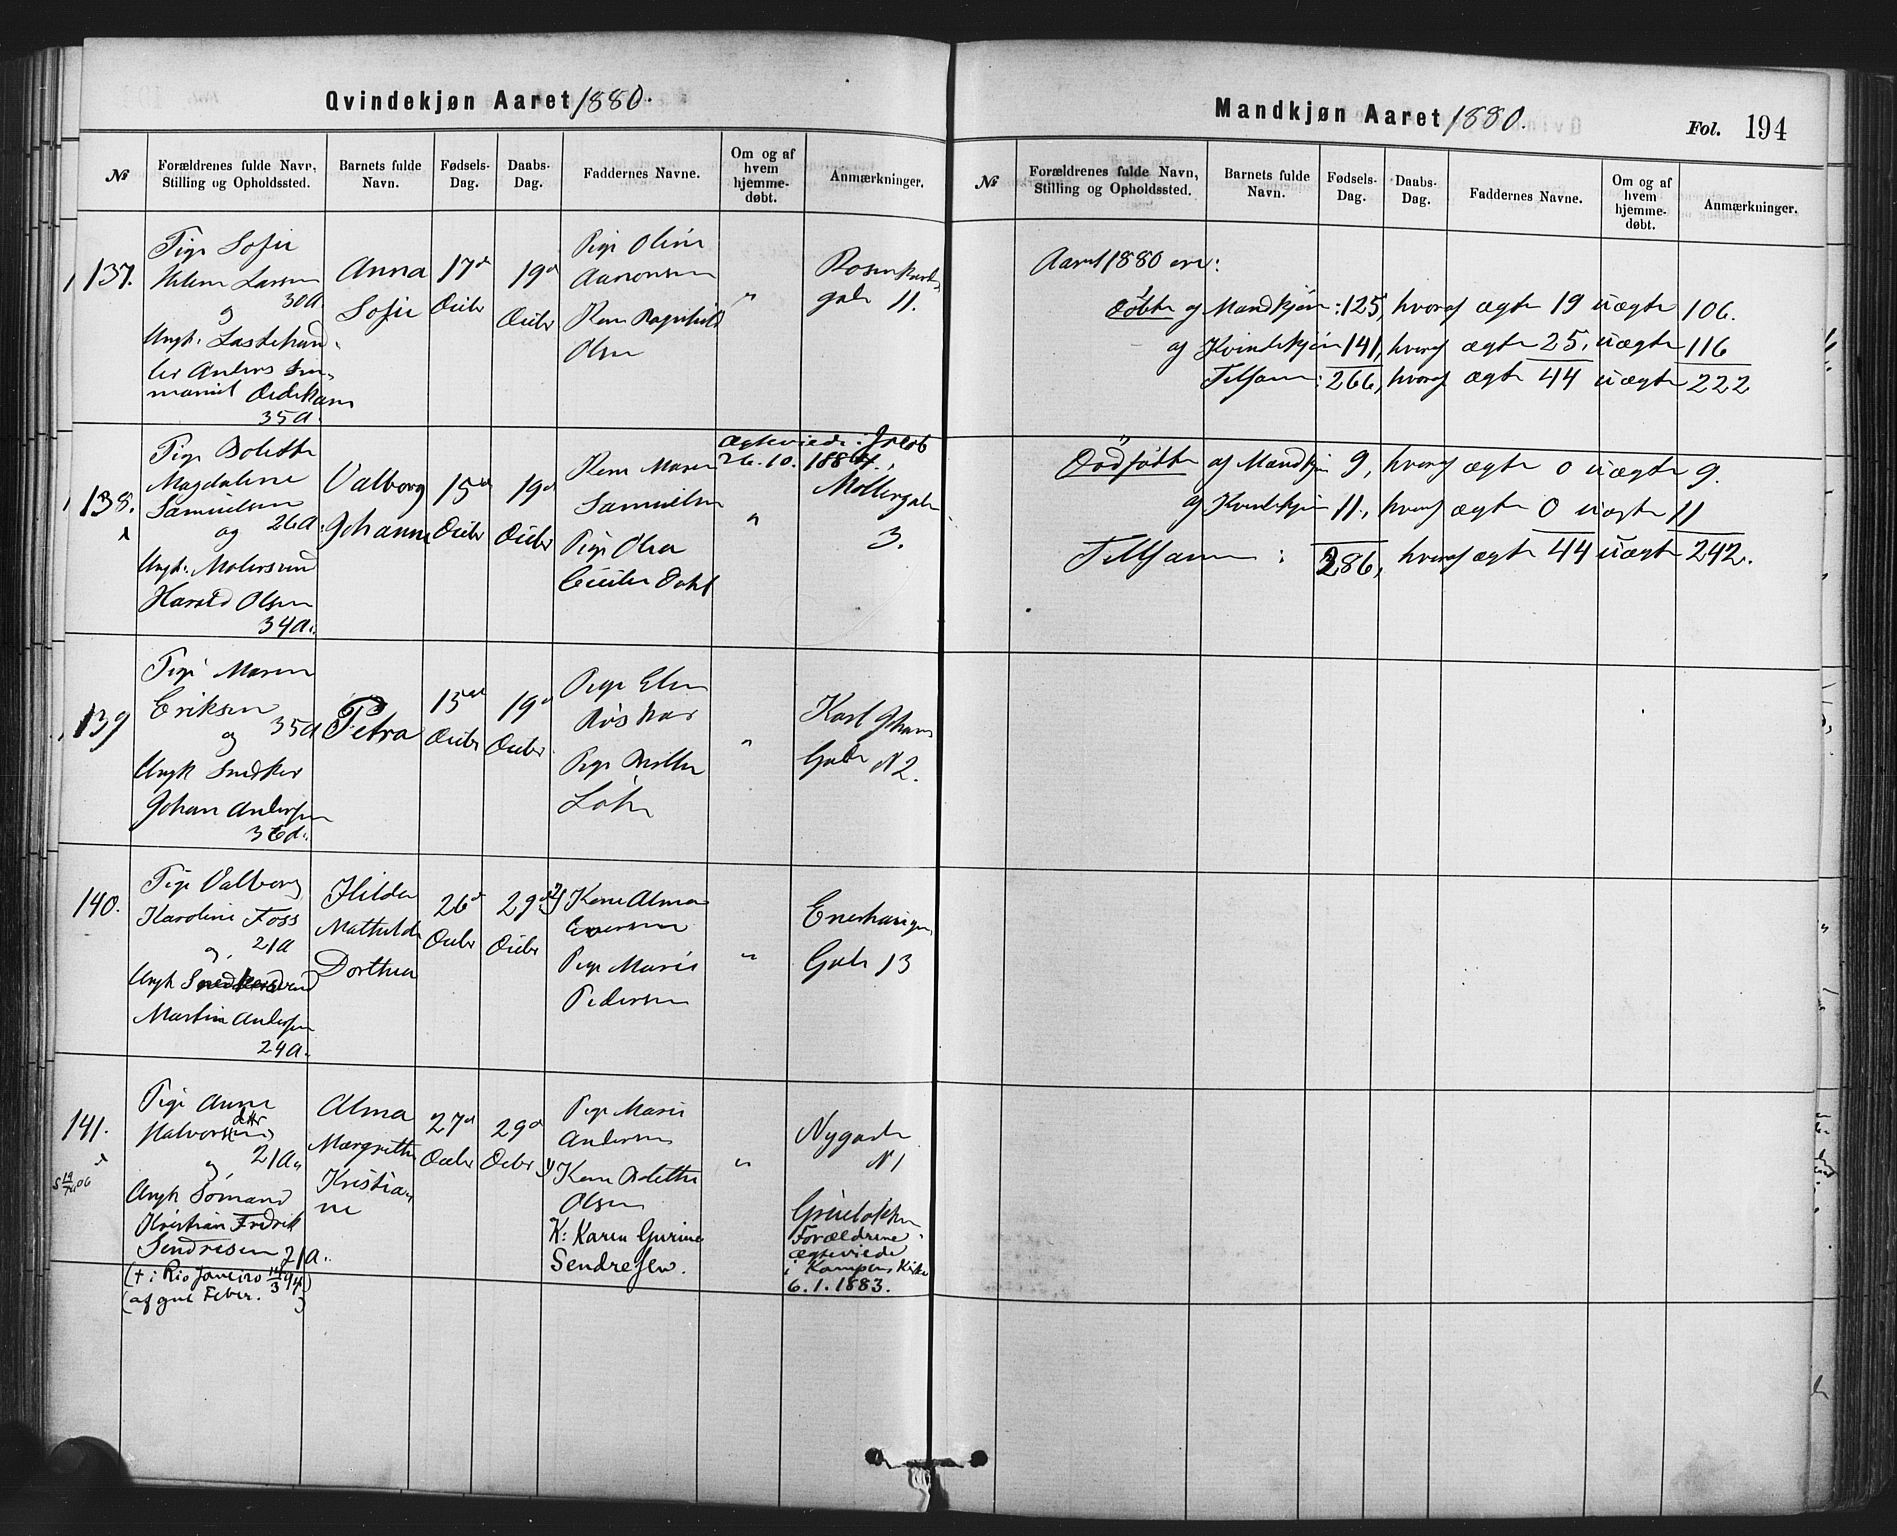 Qvindekjøn Aaret 1880.
№ Forældrenes fulde Navn, Stilling og Opholdssted. Barnets fulde Navn. Fødsels-Dag. Daabs-Dag. Faddernes Navne. Om og af hvem hjemme-døbt. Anmærkninger.
137.
Pige Sofie
Helene Larsen
30 A
og
Ungk.
Anders
35 A.
Anna
Sofie
17d
Decbr
19d
Decbr
Pige Oline
Aanonsen
Kone Ragnhild
Olsen
"
gade 11.
138.
Pige Bolette
Magdalene
Samuelsen
og 26 A.
Ungk. Molersvend
Harald Olsen
34 A.
Valborg
Johanne
15d
Decbr
19d
Decbr
Kone Maren
Samuelsen
Pige Olea
Cecilie Dahl
"
Ægteviede i Jacob
26.10.1884.
Møllergade
3.
139
Pige Maren
Eriksen
og 35 A
Ungk Snedker
Johan Andersen
36 A.
Petra
15de
Decbr
19d
Decbr
Pige Elen
Pige
"
Karl Johans
Gade № 2.
140.
Pige Valborg
Karoline Foss
21 A
og
Ungk Snedkersvend
Martin Andersen
24 A.
Hilda
Mathilde
Dorthea
26d
Decbr
29d
Decbr
Kone Alma
Iversen
Pige Marie
Pedersen
"
Enerhaugen
Gade 13
141.
Pige Anne
Halvorsen
dttr
og 21 A.
Ungk Sømand
Kristian Fredrik
Sendresen 21 A.
(† i Rio Janeiro 14/3 94)
(af gul Feber.)
s 19/10 06
Alma
Margrethe
Kristia-
ne
27d
Decbr
29d
Decbr
Pige Marie
Andersen
Kone Bolette
Olsen
K: Karen Gurine
Sendresen.
"
Nygade
№ 1
Grüneløkken
Forældrene
ægteviede
i Kampens Kirke
6.1.1883.
Mandkjøn Aaret 1880.
Fol. 194
№ Forældrenes fulde Navn, Stilling og Opholdssted. Barnets fulde Navn. Fødsels-Dag. Daabs-Dag. Faddernes Navne. Om og af hvem hjemme-døbt. Anmærkninger.
Aaret 1880 ere:
Døbte af Mandkjøn: 125, hvoraf ægte 19 uægte 106.
af Kvindekjøn 141, hvoraf ægte 25, uægte 116
Tilsam: 266, hvoraf ægte 44 uægte 222
Dødfødte af Mandkjøn 9, hvoraf ægte 0 uægte 9.
af Kvindekjøn 11, hvoraf ægte 0 uægte 11
Tilsam: 286, hvoraf ægte 44 uægte 242.